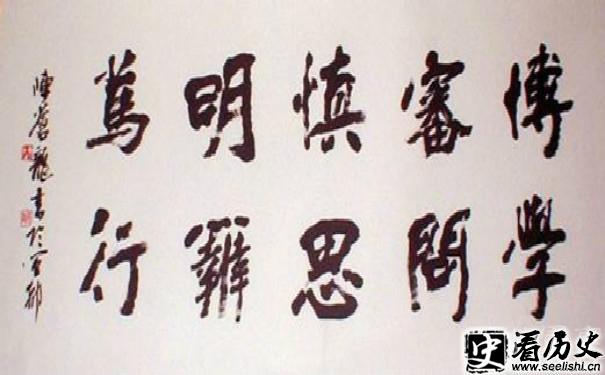 博學
審問
慎思
明辨
篤行
龍書於
看历史
www.seelishi.cn